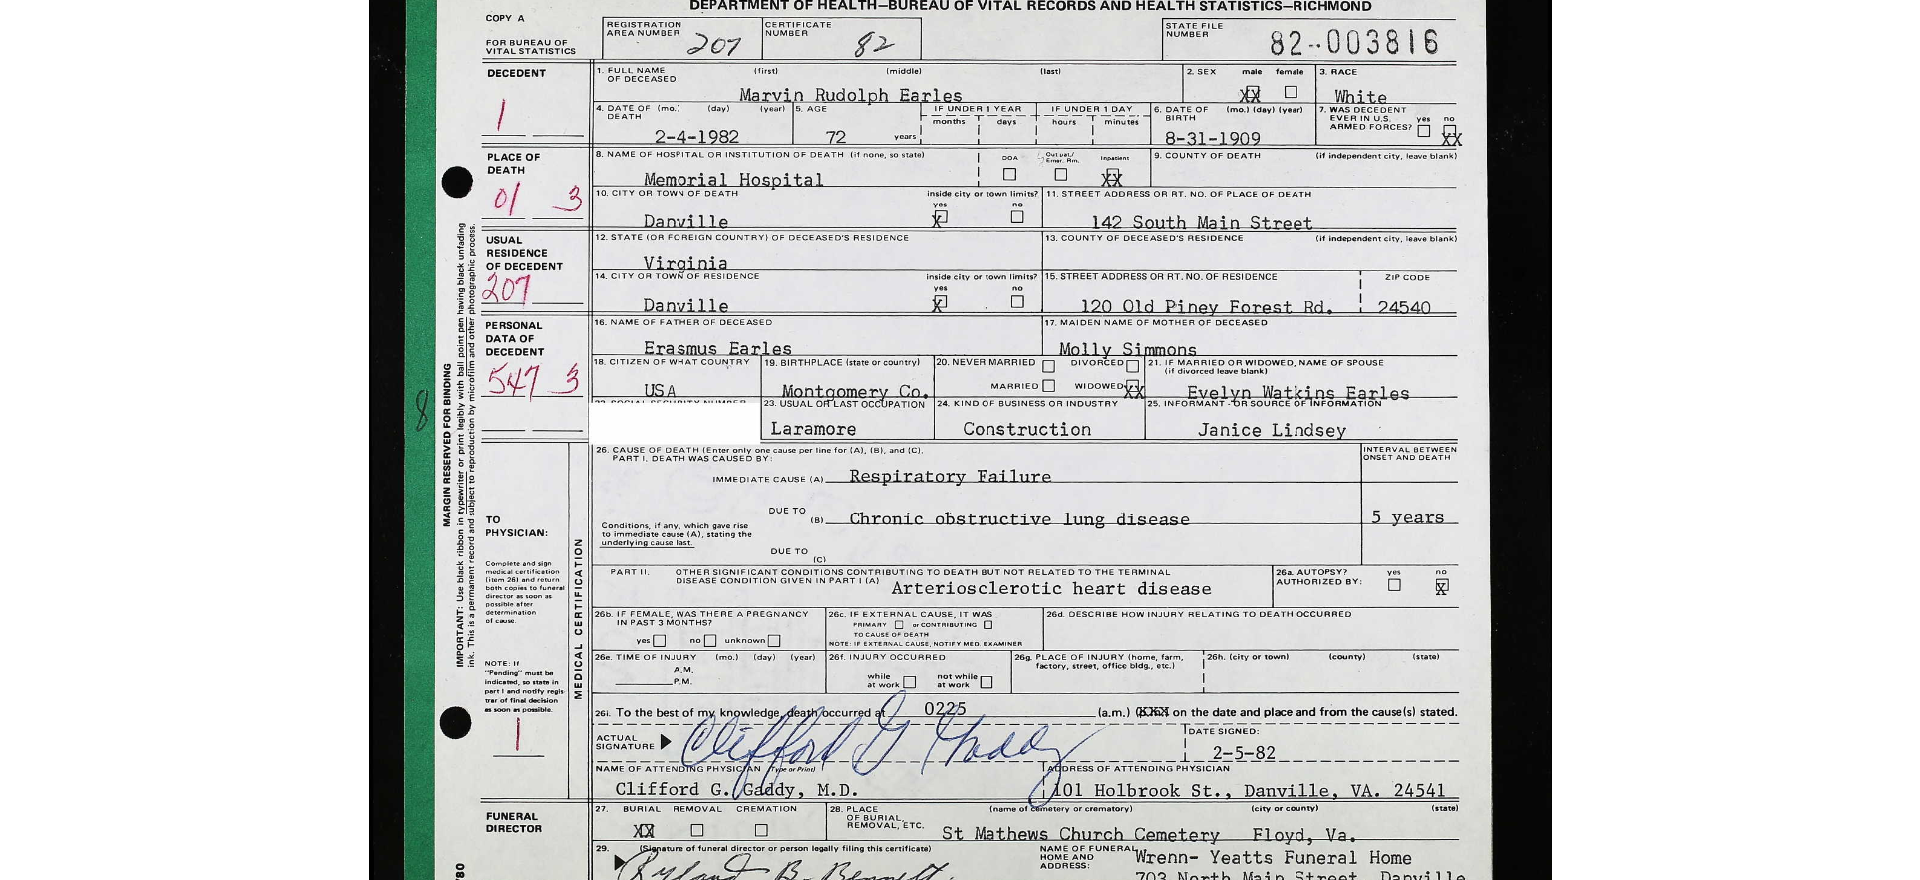 DEPARTMENT OF HEALTH—BUREAU OF VITAL RECORDS AND HEALTH STATISTICS—RICHMOND
COPY A
FOR BUREAU OF VITAL STATISTICS
REGISTRATION AREA NUMBER 207
CERTIFICATE NUMBER 82
STATE FILE NUMBER 82--003816
DECEDENT
1
1. FULL NAME OF DECEASED (first) (middle) (last)
Marvin Rudolph Earles
2. SEX male female
XX
3. RACE
White
4. DATE OF DEATH (mo.) (day) (year)
2-4-1982
5. AGE
72 years
IF UNDER 1 YEAR months days
IF UNDER 1 DAY hours minutes
6. DATE OF BIRTH (mo.) (day) (year)
8-31-1909
7. WAS DECEDENT EVER IN U.S. ARMED FORCES? yes no
XX
PLACE OF DEATH
01 3
8. NAME OF HOSPITAL OR INSTITUTION OF DEATH (if none, so state)
Memorial Hospital
DOA Out pat./ Emer. Rm. Inpatient
XX
9. COUNTY OF DEATH (if independent city, leave blank)
10. CITY OR TOWN OF DEATH
Danville
inside city or town limits? yes no
X
11. STREET ADDRESS OR RT. NO. OF PLACE OF DEATH
142 South Main Street
USUAL RESIDENCE OF DECEDENT
207
12. STATE (OR FOREIGN COUNTRY) OF DECEASED'S RESIDENCE
Virginia
13. COUNTY OF DECEASED'S RESIDENCE (if independent city, leave blank)
14. CITY OR TOWN OF RESIDENCE
Danville
inside city or town limits? yes no
X
15. STREET ADDRESS OR RT. NO. OF RESIDENCE
120 Old Piney Forest Rd.
ZIP CODE
24540
PERSONAL DATA OF DECEDENT
547 3
16. NAME OF FATHER OF DECEASED
Erasmus Earles
17. MAIDEN NAME OF MOTHER OF DECEASED
Molly Simmons
18. CITIZEN OF WHAT COUNTRY
USA
19. BIRTHPLACE (state or country)
Montgomery Co.
20. NEVER MARRIED DIVORCED
MARRIED WIDOWED XX
21. IF MARRIED OR WIDOWED, NAME OF SPOUSE (if divorced leave blank)
Evelyn Watkins Earles
23. USUAL OR LAST OCCUPATION
Laramore
24. KIND OF BUSINESS OR INDUSTRY
Construction
25. INFORMANT - OR SOURCE OF INFORMATION
Janice Lindsey
8
MARGIN RESERVED FOR BINDING
IMPORTANT: Use black ribbon in typewriter or print legibly with ball point pen having black unfading
ink. This is a permanent record and subject to reproduction by microfilm and other photographic process.
TO PHYSICIAN:
Complete and sign medical certification (item 26) and return both copies to funeral director as soon as possible after determination of cause.
NOTE: If "Pending" must be indicated, so state in part I and notify registrar of final decision as soon as possible.
1
MEDICAL CERTIFICATION
26. CAUSE OF DEATH (Enter only one cause per line for (A), (B), and (C).
PART I. DEATH WAS CAUSED BY:
INTERVAL BETWEEN ONSET AND DEATH
IMMEDIATE CAUSE (A) Respiratory Failure
DUE TO (B) Chronic obstructive lung disease 5 years
Conditions, if any, which gave rise to immediate cause (A), stating the underlying cause last.
DUE TO (C)
PART II. OTHER SIGNIFICANT CONDITIONS CONTRIBUTING TO DEATH BUT NOT RELATED TO THE TERMINAL DISEASE CONDITION GIVEN IN PART I (A)
Arteriosclerotic heart disease
26a. AUTOPSY? AUTHORIZED BY: yes no
X
26b. IF FEMALE, WAS THERE A PREGNANCY IN PAST 3 MONTHS?
yes no unknown
26c. IF EXTERNAL CAUSE, IT WAS
PRIMARY or CONTRIBUTING
TO CAUSE OF DEATH
NOTE: IF EXTERNAL CAUSE, NOTIFY MED. EXAMINER
26d. DESCRIBE HOW INJURY RELATING TO DEATH OCCURRED
26e. TIME OF INJURY (mo.) (day) (year)
A.M.
P.M.
26f. INJURY OCCURRED
while at work not while at work
26g. PLACE OF INJURY (home, farm, factory, street, office bldg., etc.)
26h. (city or town) (county) (state)
26i. To the best of my knowledge, death occurred at 0225 (a.m.) XXX on the date and place and from the cause(s) stated.
ACTUAL SIGNATURE Clifford G Gaddy
DATE SIGNED:
2-5-82
NAME OF ATTENDING PHYSICIAN (Type or Print)
Clifford G. Gaddy, M.D.
ADDRESS OF ATTENDING PHYSICIAN
101 Holbrook St., Danville, VA. 24541
FUNERAL DIRECTOR
27. BURIAL REMOVAL CREMATION
XX
28. PLACE OF BURIAL, REMOVAL, ETC.
(name of cemetery or crematory) (city or county) (state)
St Mathews Church Cemetery Floyd, Va.
29. (Signature of funeral director or person legally filing this certificate)
Ryland B. Bennett
NAME OF FUNERAL HOME AND ADDRESS:
Wrenn- Yeatts Funeral Home
703 North Main Street, Danville
/80